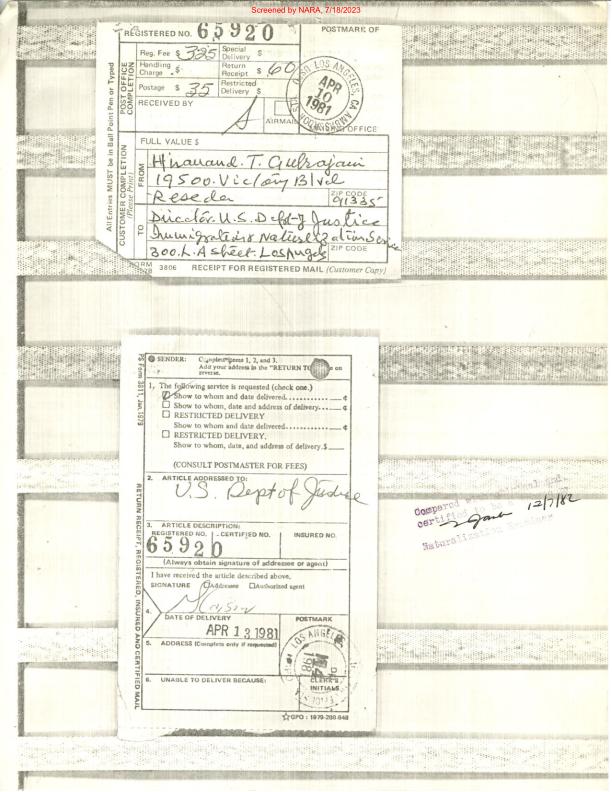 Screened by NARA, 7/18/2023
REGISTERED NO. 65920
POSTMARK OF
Reg. Fee $ 325 Special Delivery $
Handling Charge $ Return Receipt $ 60
Postage $ 35 Restricted Delivery $
RECEIVED BY
AIRMAIL
OFFICE
LOS ANGELES, CA
APR
10
1981
All Entries MUST be in Ball Point Pen or Typed
POST OFFICE COMPLETION
CUSTOMER COMPLETION
(Please Print)
FULL VALUE $
FROM
Hiranand. T. Gulrajani
19500. Victory Blvd
Reseda
ZIP CODE
91335
TO
Director. U.S. Dept of Justice
Immigration & Naturalization Service
300. L.A street. Los Angeles
ZIP CODE
3806 RECEIPT FOR REGISTERED MAIL (Customer Copy)
PS Form 3811, Jan. 1979
RETURN RECEIPT, REGISTERED, INSURED AND CERTIFIED MAIL
SENDER: Complete items 1, 2, and 3.
Add your address in the "RETURN TO" on
reverse.
1. The following service is requested (check one.)
Show to whom and date delivered............ ¢
Show to whom, date and address of delivery... ¢
RESTRICTED DELIVERY
Show to whom and date delivered............ ¢
RESTRICTED DELIVERY.
Show to whom, date, and address of delivery.$
(CONSULT POSTMASTER FOR FEES)
2. ARTICLE ADDRESSED TO:
U.S. Dept of Justice
3. ARTICLE DESCRIPTION:
REGISTERED NO. CERTIFIED NO. INSURED NO.
65920
(Always obtain signature of addressee or agent)
I have received the article described above.
SIGNATURE Addressee Authorized agent
4.
DATE OF DELIVERY
POSTMARK
APR 13 1981
LOS ANGELES
5. ADDRESS (Complete only if requested)
6. UNABLE TO DELIVER BECAUSE:
CLERK'S INITIALS
GPO : 1979-288-848
Compared with original and
certified to
12/7/82
Naturalization